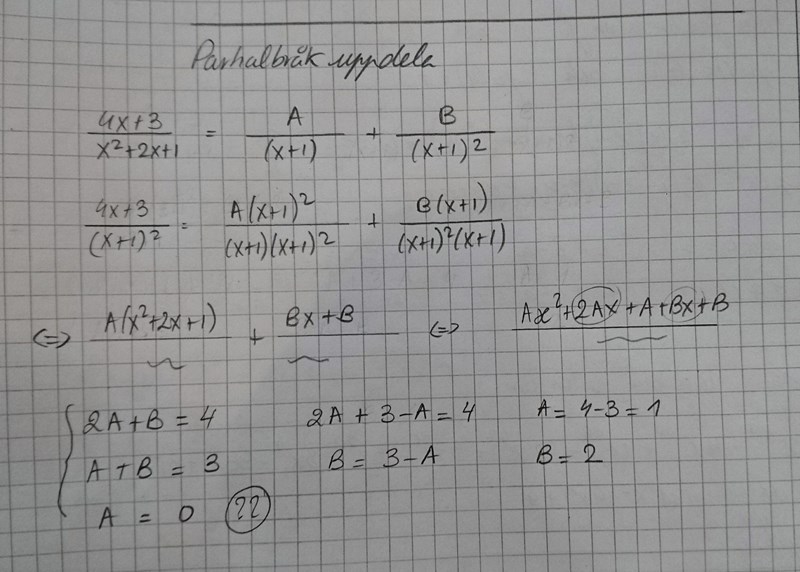 Parhalbråk uppdela
4x+3 / x²+2x+1 = A / (x+1) + B / (x+1)²
4x+3 / (x+1)² = A(x+1)² / (x+1)(x+1)² + B(x+1) / (x+1)²(x+1)
<=> A(x²+2x+1) / ~ + Bx+B / ~ <=> Ax²+2Ax+A+Bx+B / ~
{ 2A+B = 4 2A + 3-A = 4 A = 4-3 = 1
A+B = 3 B = 3-A B = 2
A = 0 ??